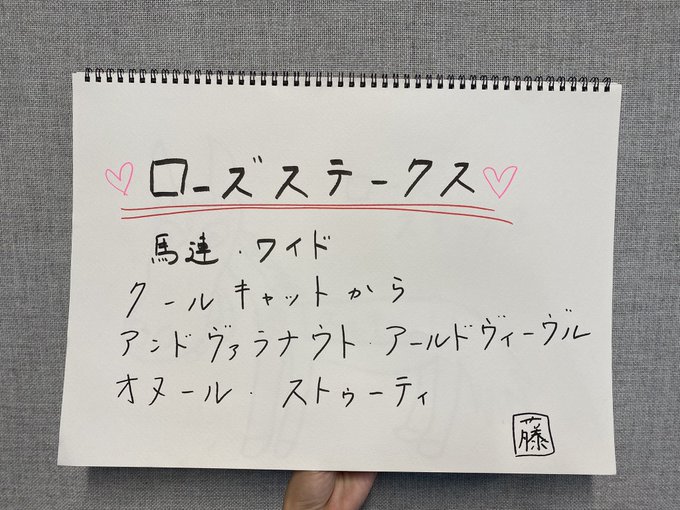 ♡ローズステークス♡
馬連・ワイド
クールキャットから
アンドヴァラナウト・アールドヴィーヴル
オヌール・ストゥーティ
藤